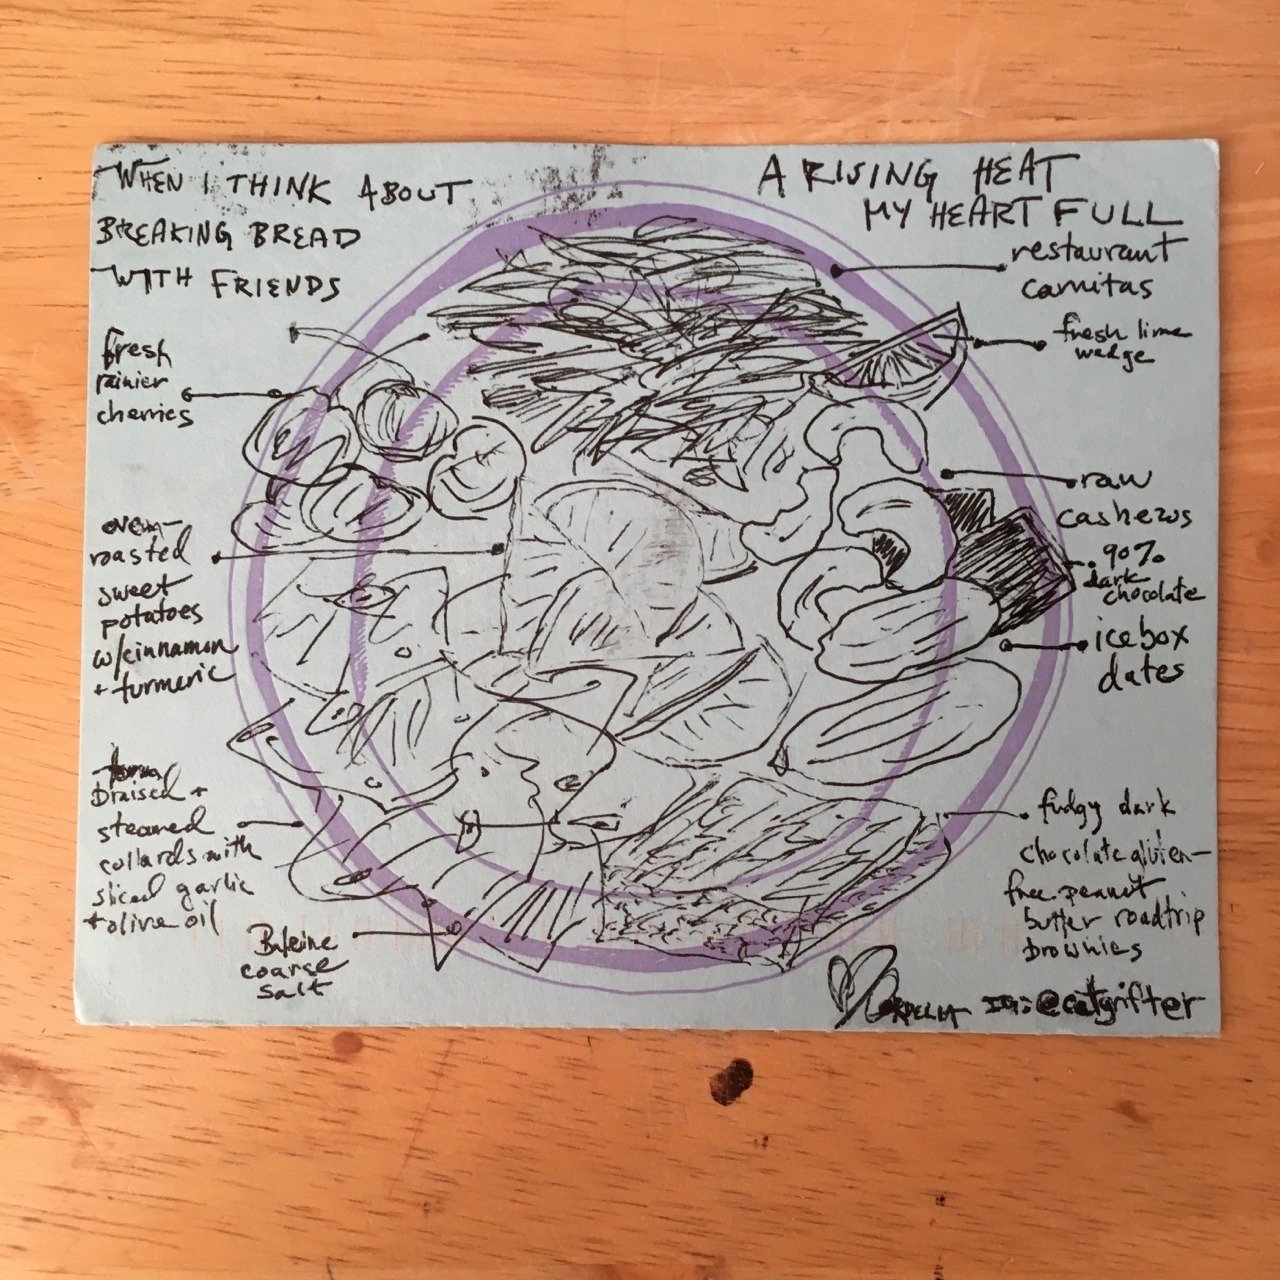 WHEN I THINK ABOUT
BREAKING BREAD
WITH FRIENDS
A RISING HEAT
MY HEART FULL
fresh
rainier
cherries
oven-
roasted
sweet
potatoes
w/cinnamon
+ turmeric
braised +
steamed
collards with
sliced garlic
+ olive oil
coarse
salt
restaurant
carnitas
fresh lime
wedge
raw
cashews
90%
dark
chocolate
icebox
dates
fudgy dark
chocolate gluten-
free peanut
butter roadtrip
brownies
IG: @catgrifter